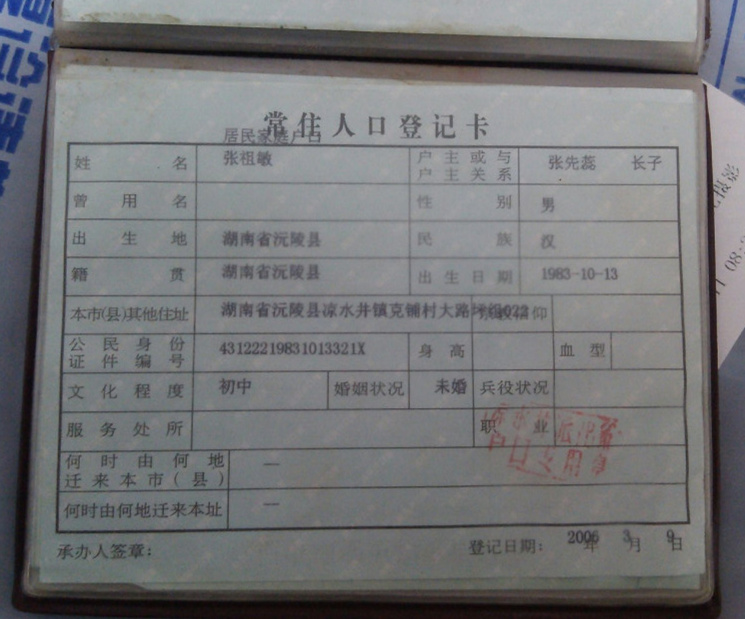 常住人口登记卡
居民家庭户口
姓名 张祖敏 户主或与户主关系 张先蕊 长子
曾用名 性别 男
出生地 湖南省沅陵县 民族 汉
籍贯 湖南省沅陵县 出生日期 1983-10-13
本市(县)其他住址 湖南省沅陵县凉水井镇克铺村大路 022 宗教信仰
公民身份证件编号 43122219831013321X 身高 血型
文化程度 初中 婚姻状况 未婚 兵役状况
服务处所 职业
户口专用章
何时由何地迁来本市(县) —
何时由何地迁来本址 —
承办人签章： 登记日期： 2006年 3月 9日